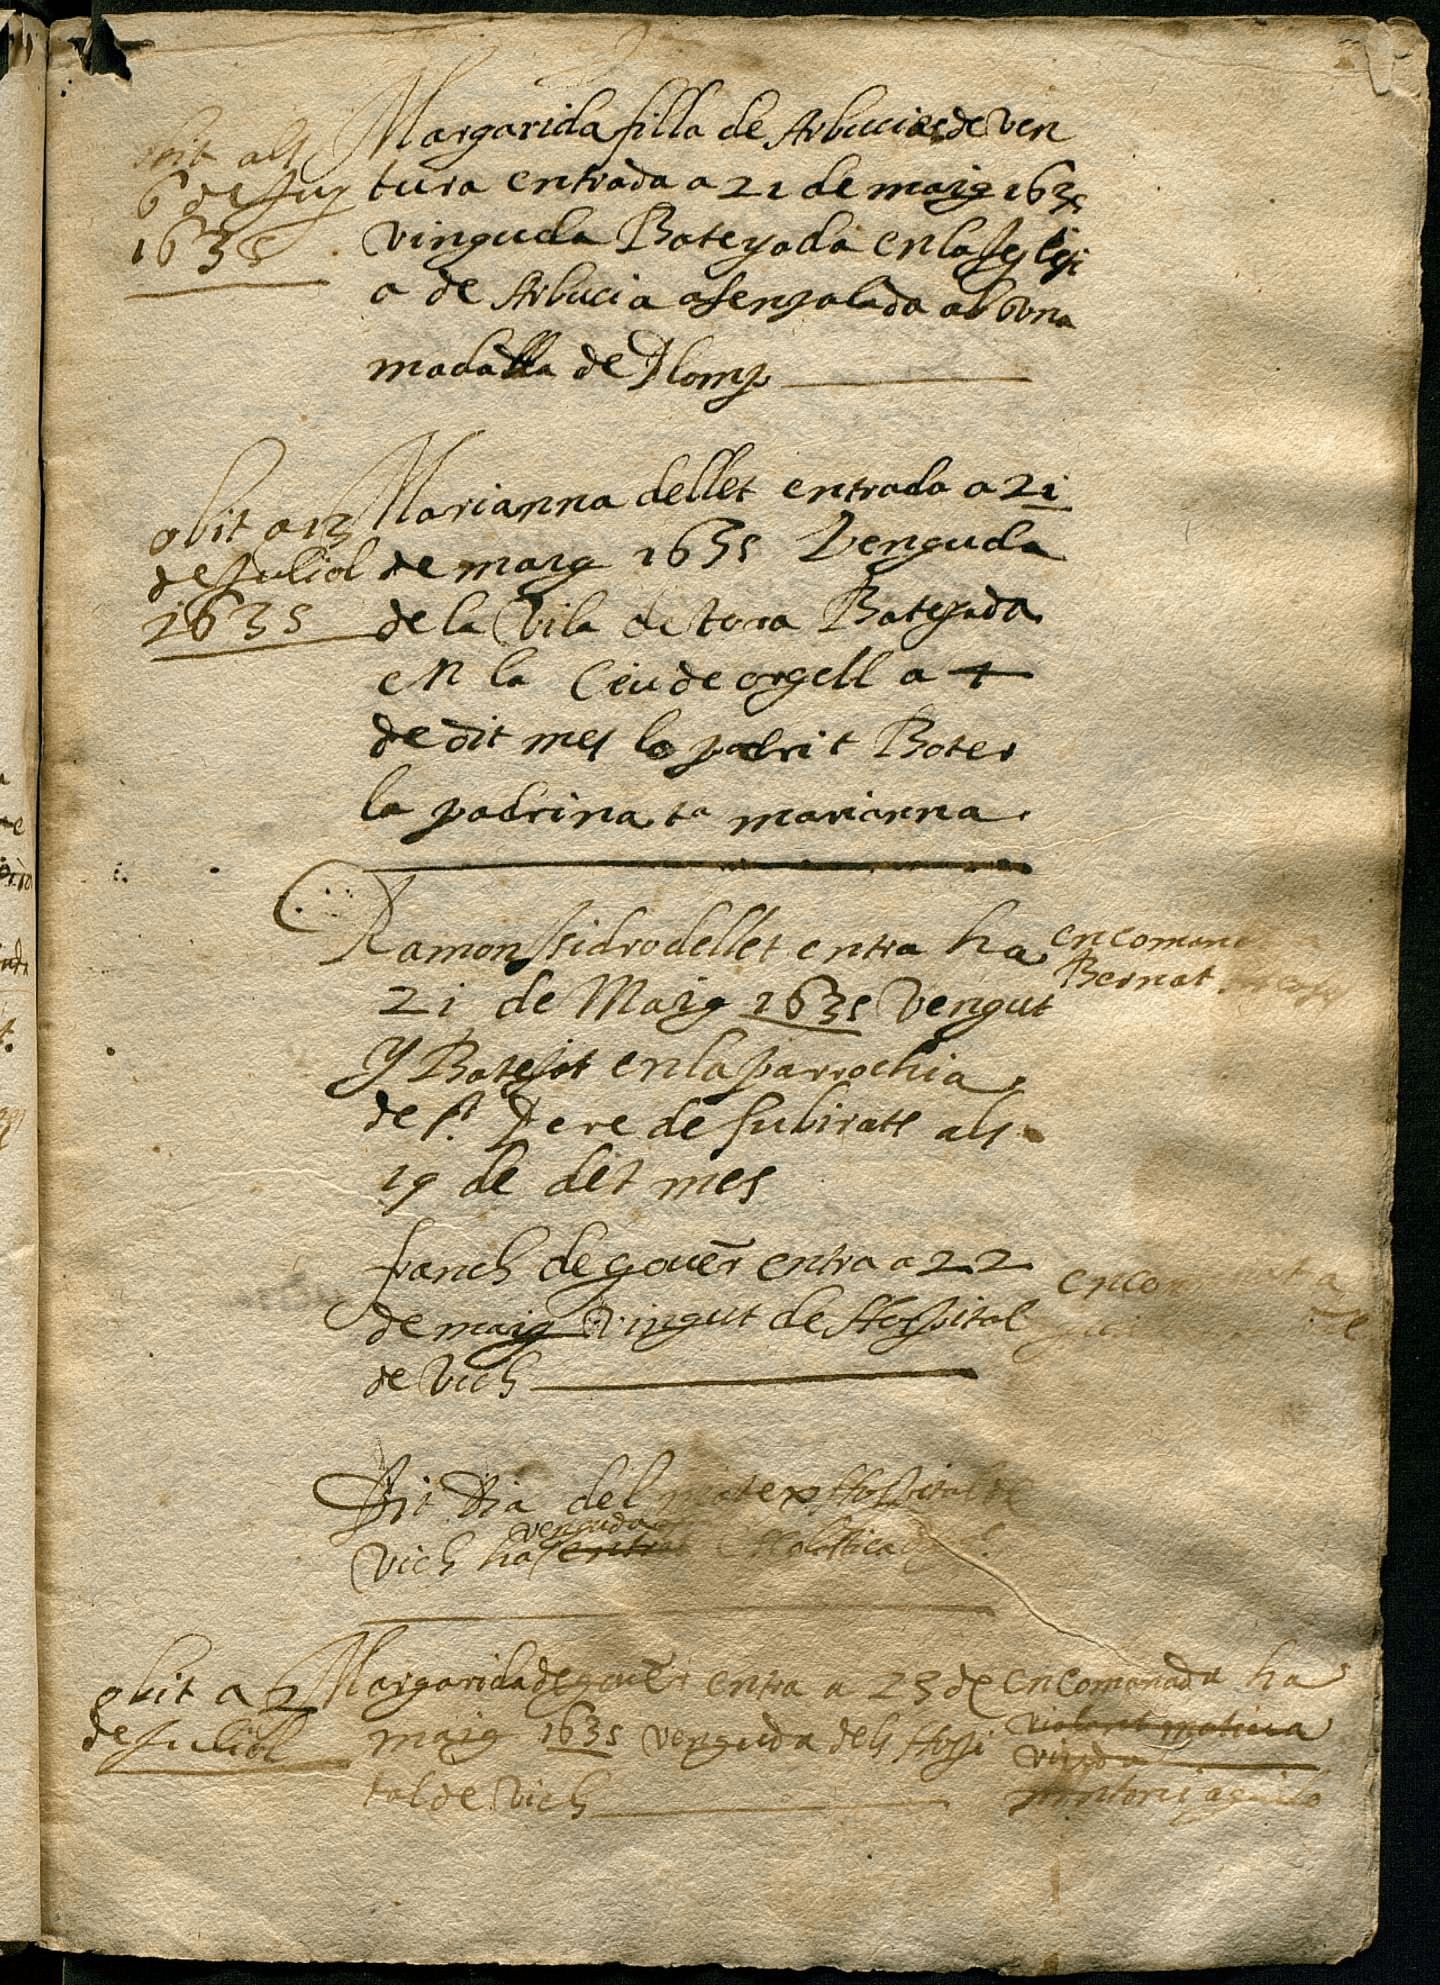 obit als
6 de Juy
1635
Margarida filla de Arbucias de ven
tura entrada a 21 de maig 1635
vinguda Bateyada en la sglesi
a de Arbucia asenyalada ab una
madalla de Plom
obit a 13
de Juliol
1635
Marianna dellet entrada a 21
de maig 1635 Venguda
de la Vila de tora Bateyada
en la Ceu de orgell a 4
de dit mes lo padrit Boter
la padrina ta marianna
Ramon Isidro dellet entra ha
21 de Maig 1635 Vengut
y Batejat en la parrochia
de St. Pere de Subirats als
19 de det mes
encomana
Bernat
franch de govern entra a 22
de maig vingut de Hospital
de Vich
Dit Dia del matex Hospital de
Vich ha venguda entra
obit a 2
de Juliol
Margarida de govern entra a 23 de
maig 1635 venguda dels Hospi
tal de Vich
encomanada ha
viuda